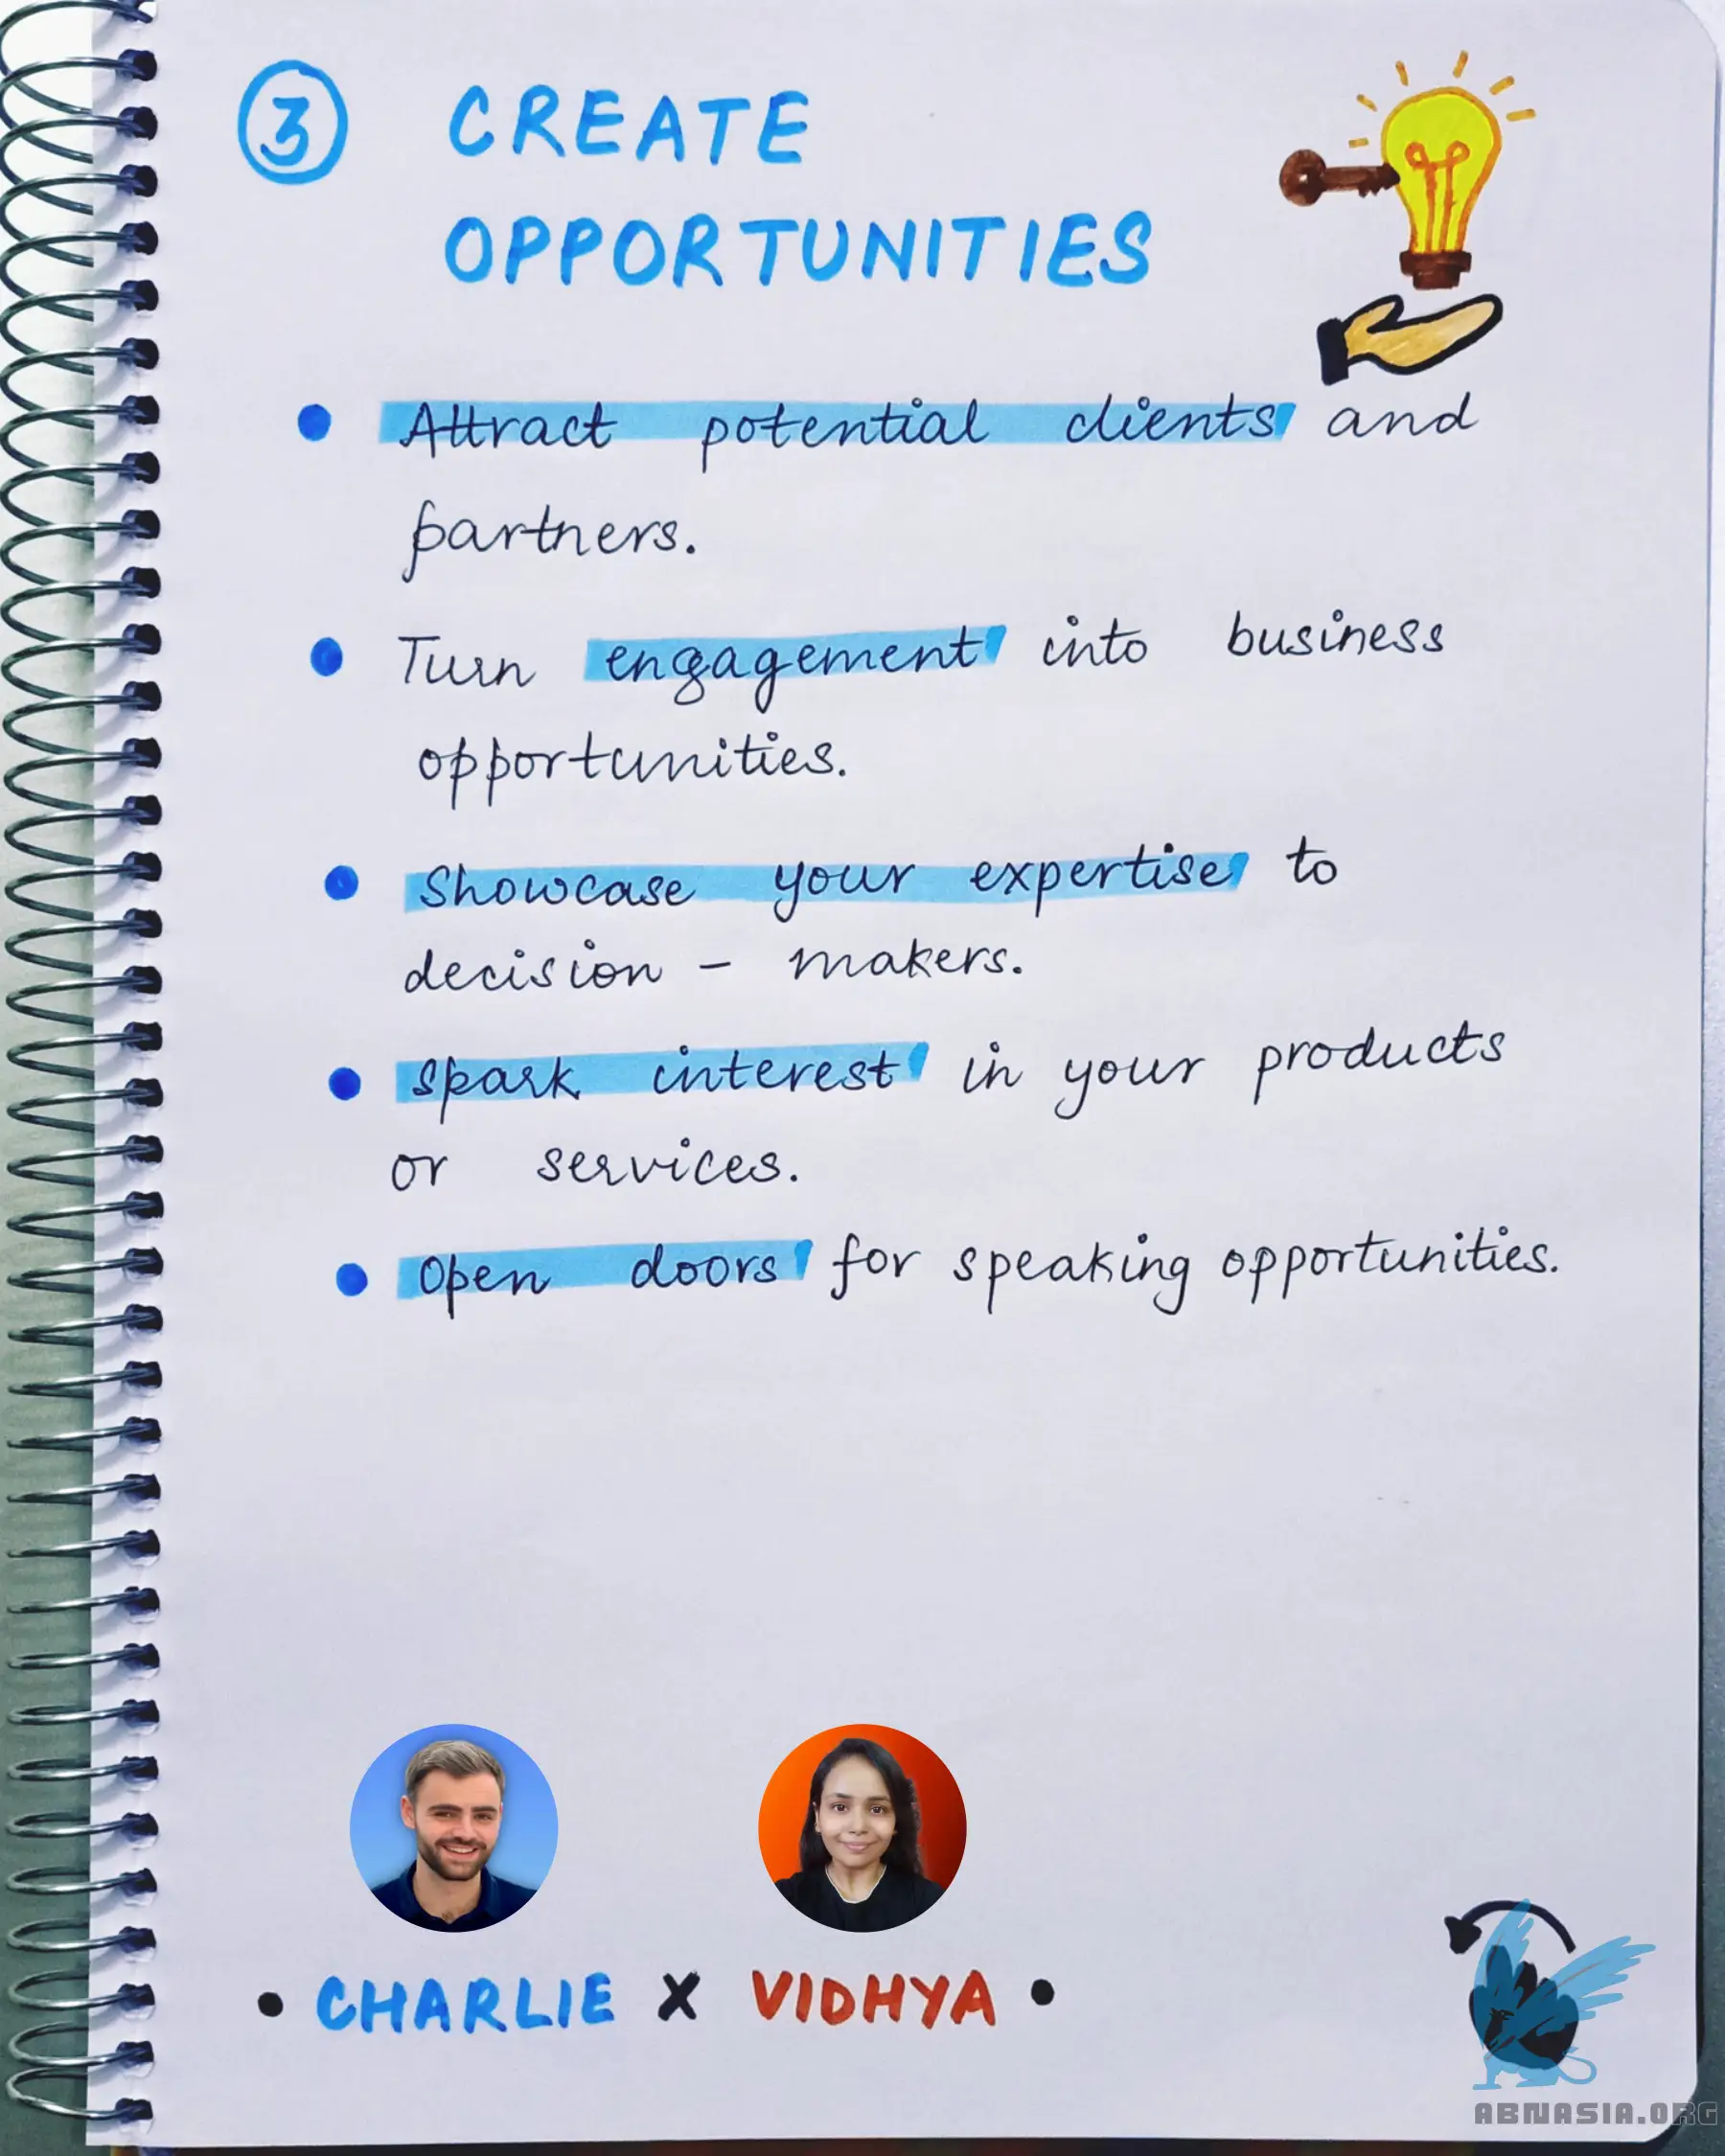 3 CREATE
OPPORTUNITIES
Attract potential clients and
partners.
Turn engagement into business
opportunities.
Showcase your expertise to
decision - makers.
Spark interest in your products
or services.
Open doors for speaking opportunities.
• CHARLIE X VIDHYA •
ABNASIA.ORG